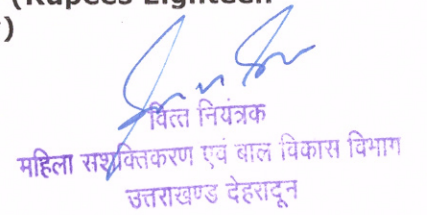 (Rupees Eighteen
)
वित्त नियंत्रक
महिला सशक्तिकरण एवं बाल विकास विभाग
उत्तराखण्ड देहरादून